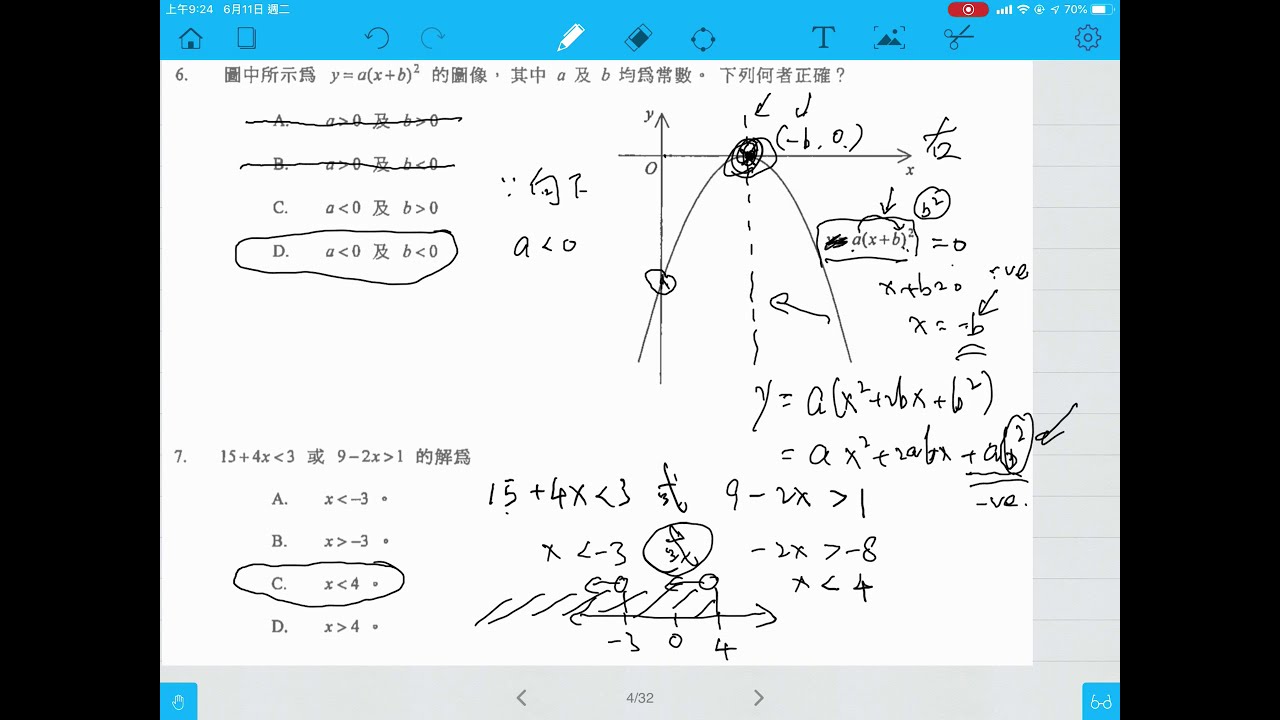 上午9:24 6月11日 週二
70%
T
6. 圖中所示為 y=a(x+b)² 的圖像，其中 a 及 b 均為常數。下列何者正確？
A. a>0 及 b>0
B. a>0 及 b<0
C. a<0 及 b>0
D. a<0 及 b<0
∵ 向下
a<0
y
O
x
(-b, 0)
右
b²
a(x+b)² =0
x+b=0
-ve
x=-b
y=a(x²+2bx+b²)
=ax²+2abx+ab²
-ve.
7. 15+4x<3 或 9−2x>1 的解為
A. x<−3。
B. x>−3。
C. x<4。
D. x>4。
15+4x<3 或 9-2x>1
x<-3 或 -2x>-8
x<4
-3 0 4
4/32